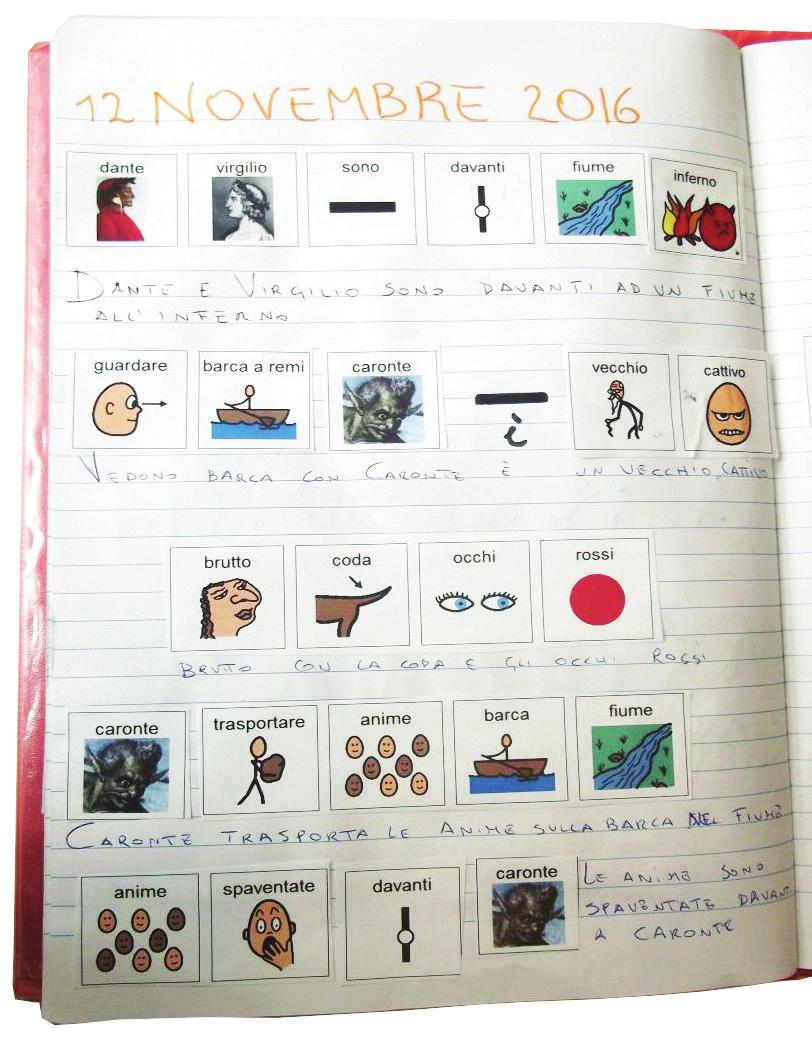 12 NOVEMBRE 2016
dante virgilio sono davanti fiume inferno
DANTE E VIRGILIO SONO DAVANTI AD UN FIUME
ALL'INFERNO
guardare barca a remi caronte vecchio cattivo
è
VEDONO BARCA CON CARONTE È UN VECCHIO, CATTIVO
brutto coda occhi rossi
BRUTTO CON LA CODA E GLI OCCHI ROSSI
caronte trasportare anime barca fiume
CARONTE TRASPORTA LE ANIME SULLA BARCA NEL FIUME
anime spaventate davanti caronte
LE ANIME SONO
SPAVENTATE DAVANTI
A CARONTE